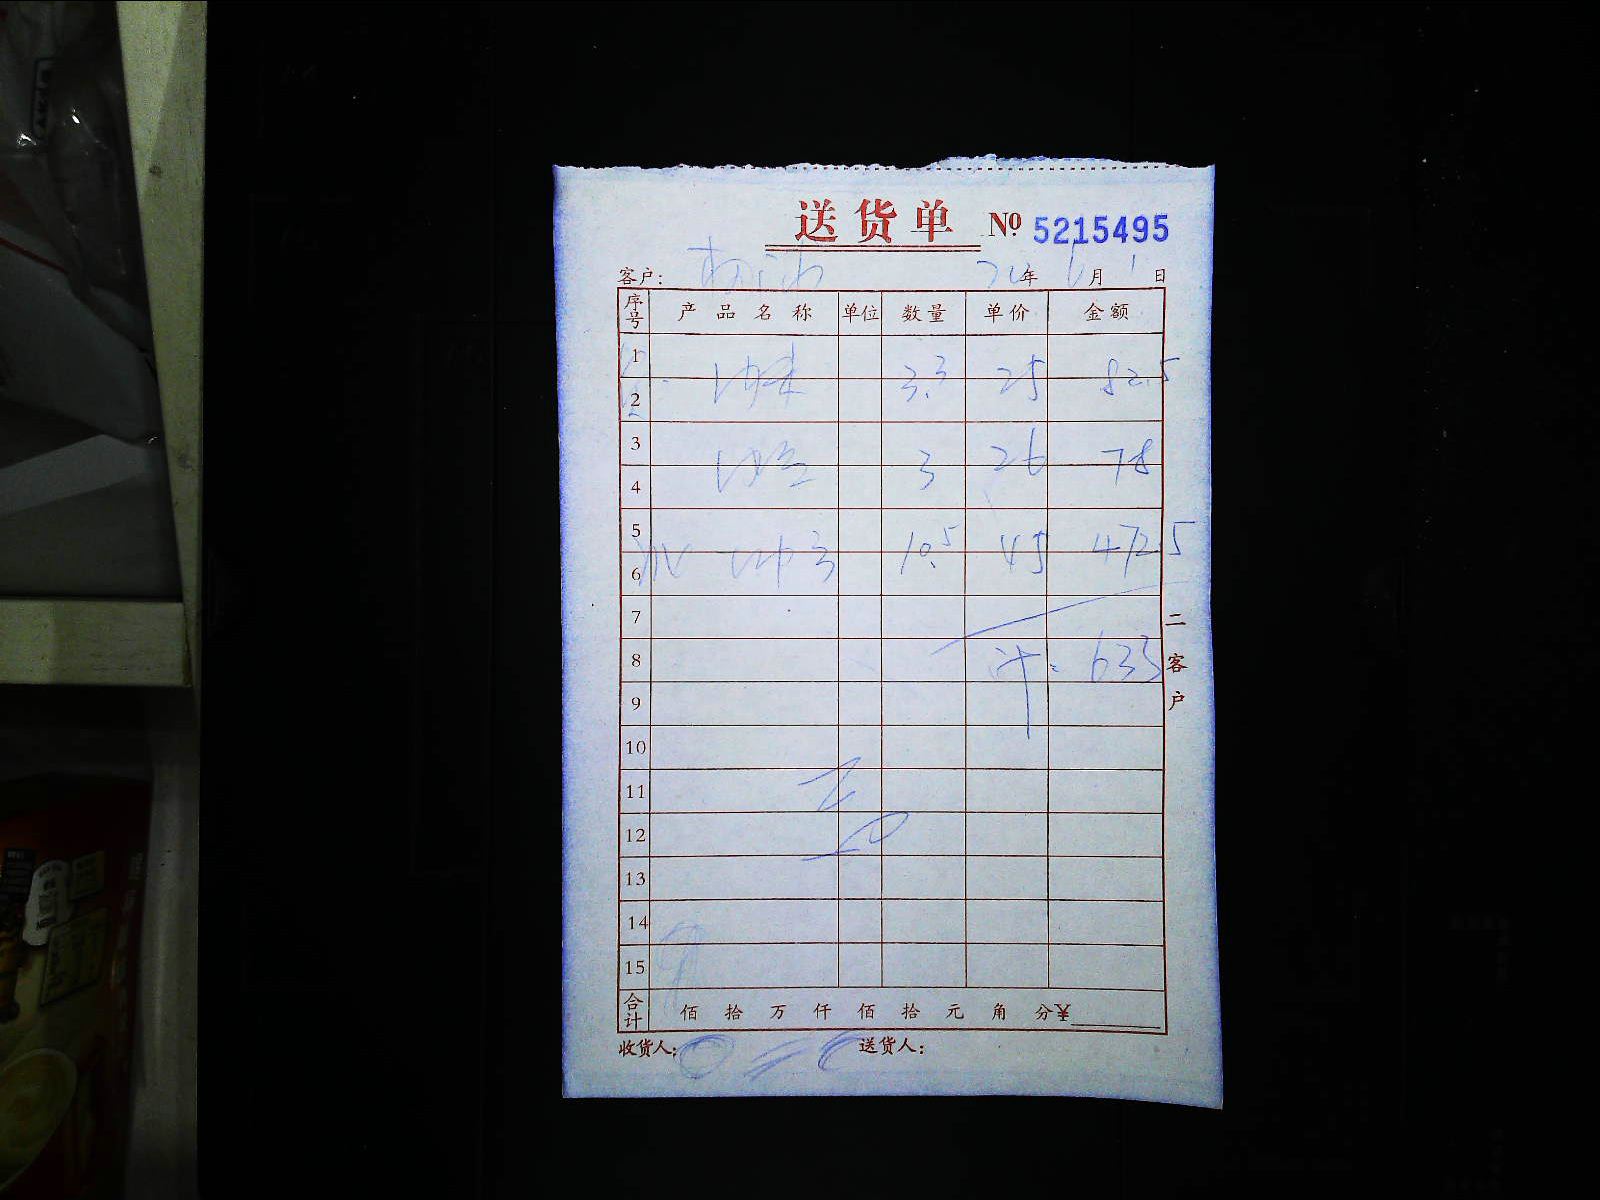 送货单 № 5215495
客户： 年 6月 1日
序号 产品名称 单位 数量 单价 金额
1 3.3 25 82.5
2
3 3 26 78
4
5 10.5 45 472.5
6
7
8 计= 633
9
10
11
12
13
14
15
合计 佰 拾 万 仟 佰 拾 元 角 分¥
收货人： 送货人：
二客户